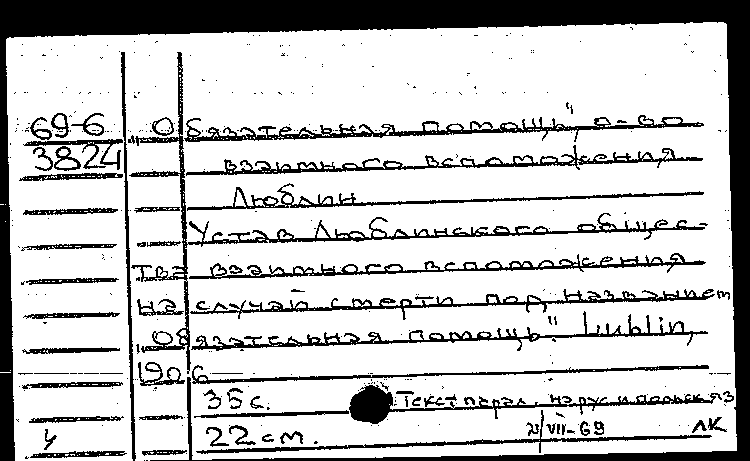 69-6 „Обязательная помощь", о-во
3824 взаимного вспоможения
Люблин
Устав Люблинского общес-
тва взаимного вспоможения
на случай смерти под названием
„Обязательная помощь". Lublin,
1906
35 с. Текст парал. на рус. и польск яз
22 см. 23/VII-69 ЛК